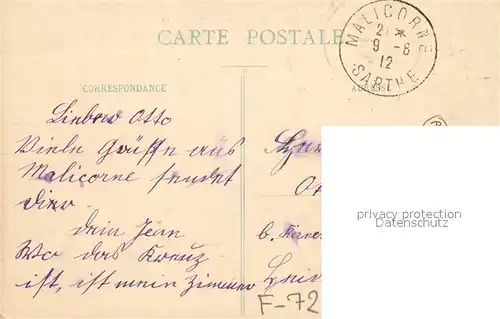 CARTE POSTALE
MALICORNE
2 *
9 - 8
12
SARTHE
CORRESPONDANCE
ADRESSE
Lieber Otto
Viele Grüsse aus
Malicorne sendet
dir
dein Jean
Wo das Kreuz
ist, ist mein Zimmer
privacy protection
Datenschutz
b.
F-72